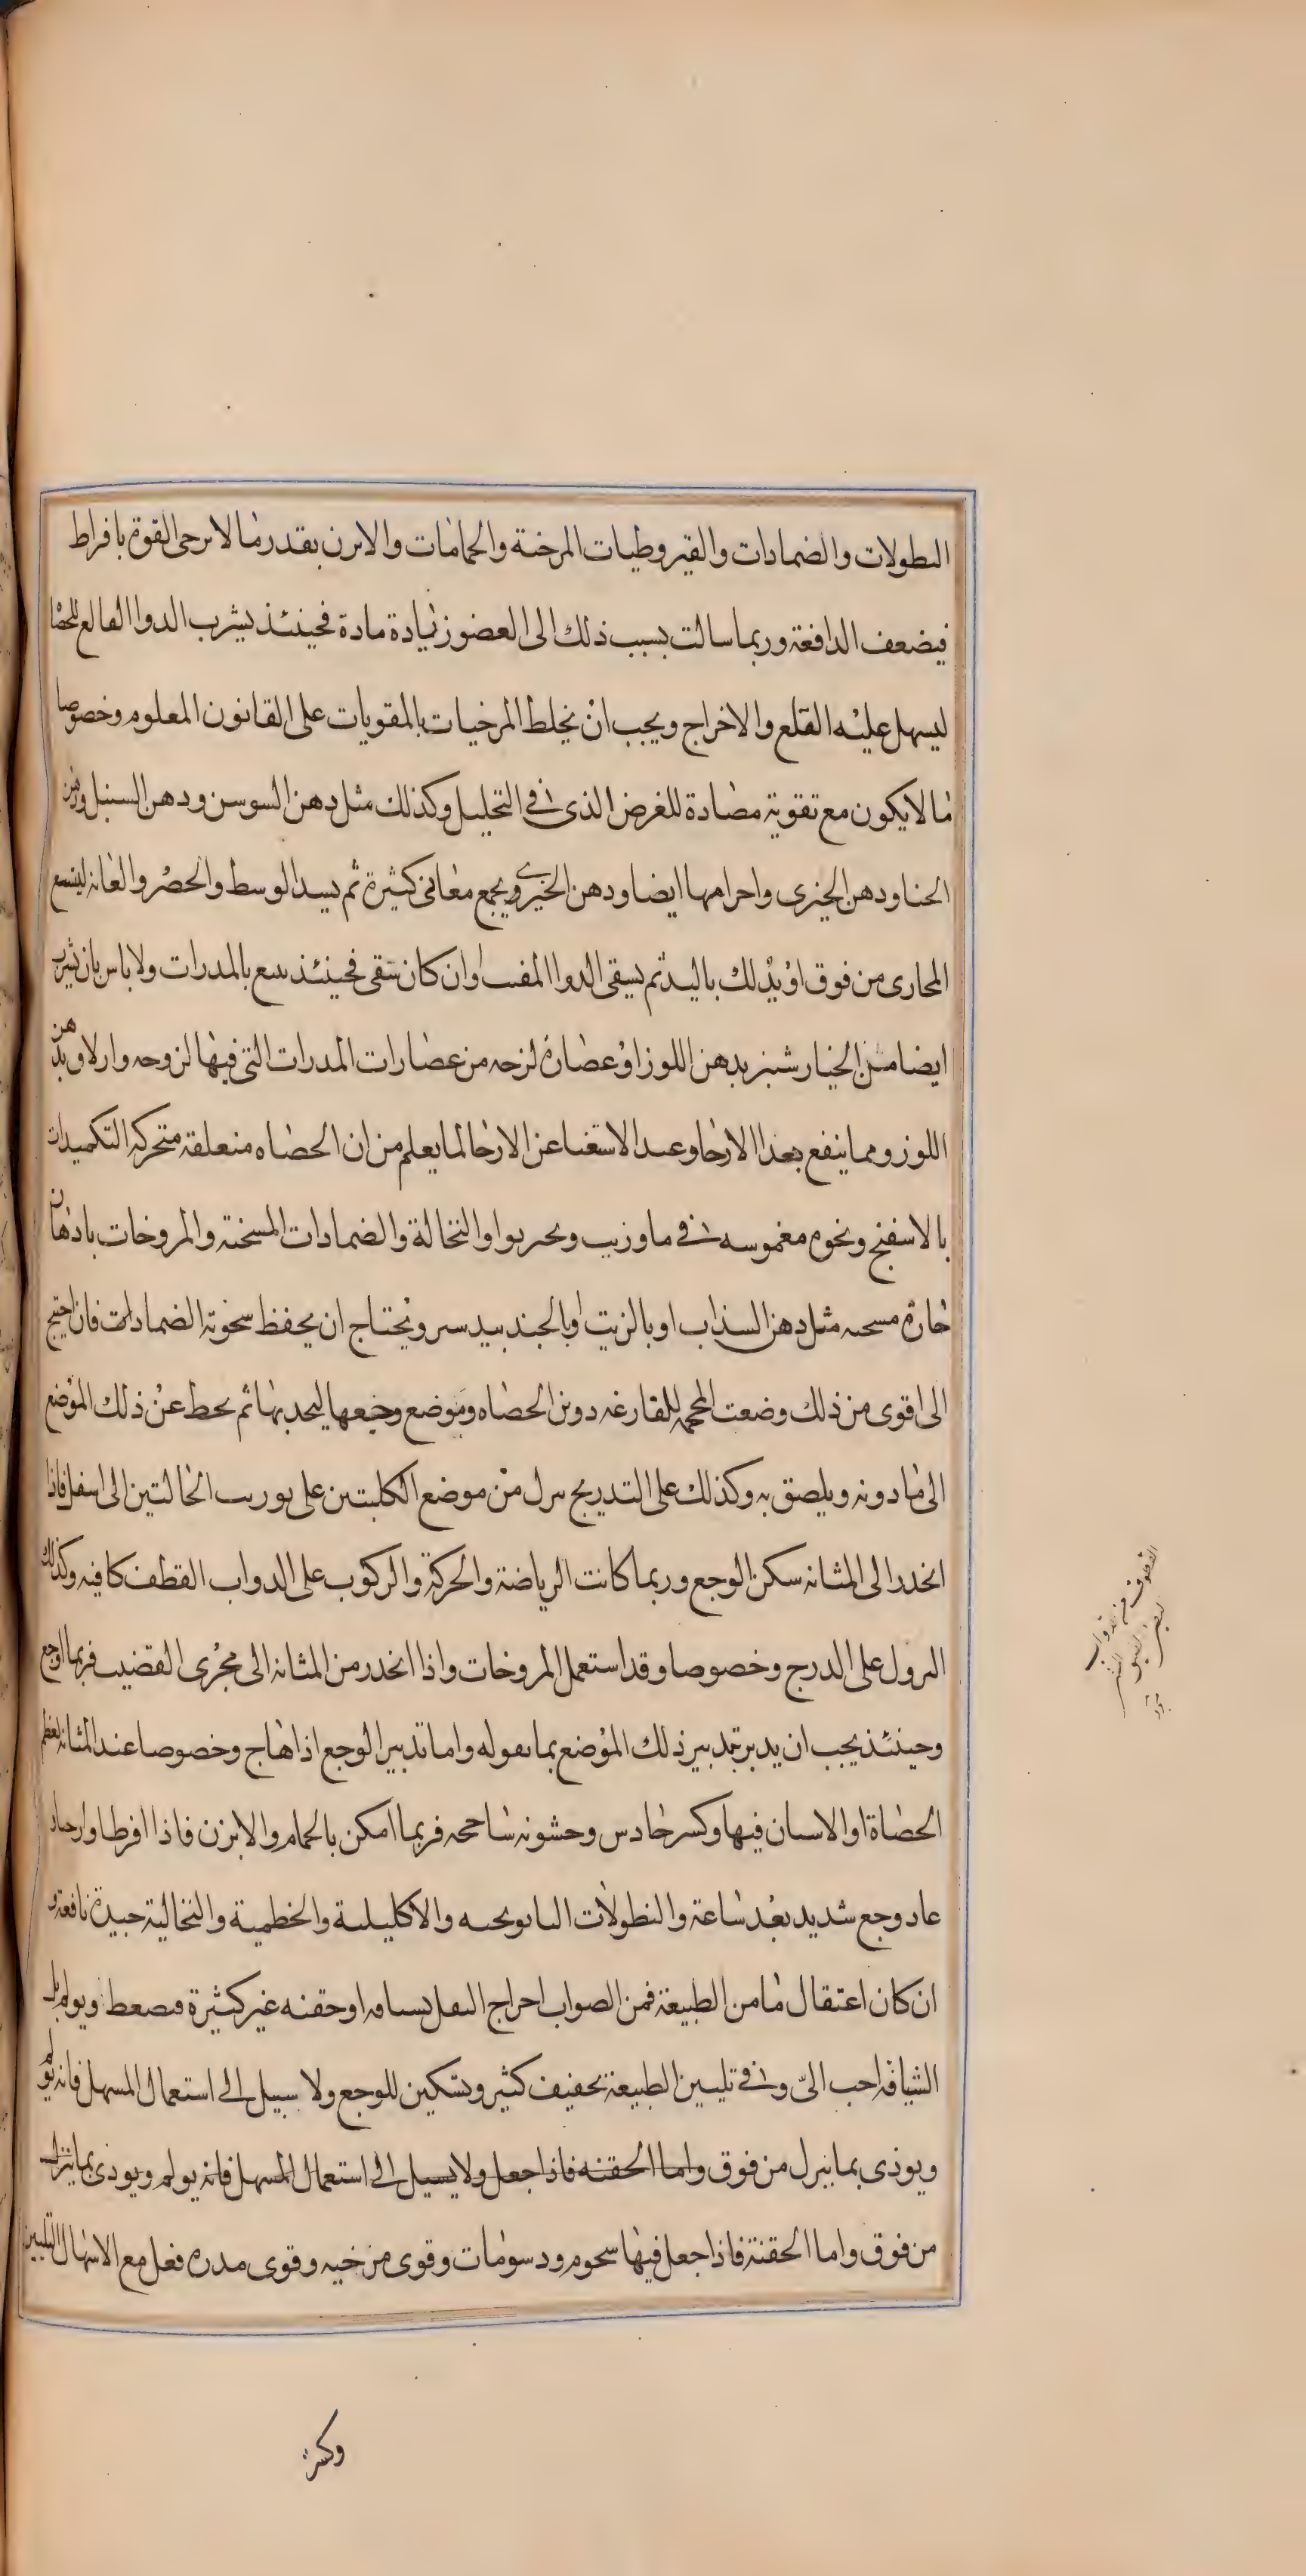 النطولات والضمادات والقيروطيات المرخية والحمامات والابزن بقدر ما لا يرخى القوة بافراط
فيضعف الدافعة وربما سالت بسبب ذلك الى العضو زيادة مادة فحينئذ يشرب الدوا القالع للحصا
ليسهل عليه القلع والاخراج ويجب ان يخلط المرخيات بالمقويات على القانون المعلوم وخصوصا
ما لا يكون مع تقوية مضادة للغرض الذى فى التحليل وكذلك مثل دهن السوسن ودهن السنبل ودهن
الحنا ودهن الخيرى واحرامها ايضا ودهن الخيرى ويجمع معانى كثيرة ثم يسد الوسط والخصر والعانه ليتسع
المجارى من فوق او يدلك باليد ثم يسقى الدوا المفتت وان كان سقى فحينئذ يتبع بالمدرات ولا باس بان يشرب
ايضا من الخيار شنبر بدهن اللوز او عصارة لزجه من عصارات المدرات التى فيها لزوجه وازلاق بدهن
اللوز ومما ينفع بعد الارخا وعند الاستغنا عن الارخا لما يعلم من ان الحصاه متعلقة متحركه التكميدات
بالاسفنج ونحوه مغموسه فى ما وزيت ونحر بوا والنخالة والضمادات المسخنة والمروخات بادهان
حارة مسخنه مثل دهن السذاب او بالزيت او بالجندبيدستر ويحتاج ان يحفظ سخونة الضمادات فان احتيج
الى اقوى من ذلك وضعت المحجمه للقارغه دوين الحصاه وموضع وجعها ليجد بها ثم يحط عن ذلك الموضع
الى ما دونه ويلصق به وكذلك على التدريج ينزل من موضع الكليتين على توريب الحالتين الى اسفل فاذا
انحدر الى المثانه سكن الوجع وربما كانت الرياضة والحركة والركوب على الدواب القطف كافيه وكذلك
النزول على الدرج وخصوصا وقد استعمل المروخات واذا انحدر من المثانه الى مجرى القضيب فربما اوجع
وحينئذ يجب ان يدبر تدبير ذلك الموضع بما نقوله واما تدبير الوجع اذا هاج وخصوصا عند المثانه لعظم
الحصاة او الاسنان فيها وكسر حادس وخشونه ساحجه فربما امكن بالحمام والابزن فاذا افرطا وارخيا
عاد وجع شديد بعد ساعة والنطولات البابونجيه والاكليلية والخطمية والنخالية جيدة نافعة و
ان كان اعتقال ما من الطبيعة فمن الصواب اخراج الثفل بشيافه او حقنه غير كثيرة فيضغط ويولم بل
الشيافة احب الىّ وفى تليين الطبيعة تخفيف كثير وتسكين للوجع ولا سبيل الى استعمال المسهل فانه يولم
ويوذى بما ينزل من فوق واما الحقنه فاذا جعل ولا يسيل الى استعمال المسهل فانه يولم ويوذى بما ينزل
من فوق واما الحقنة فاذا جعل فيها شحوم ودسومات وقوى مرخيه وقوى مدره فعل مع الاسهال التليين